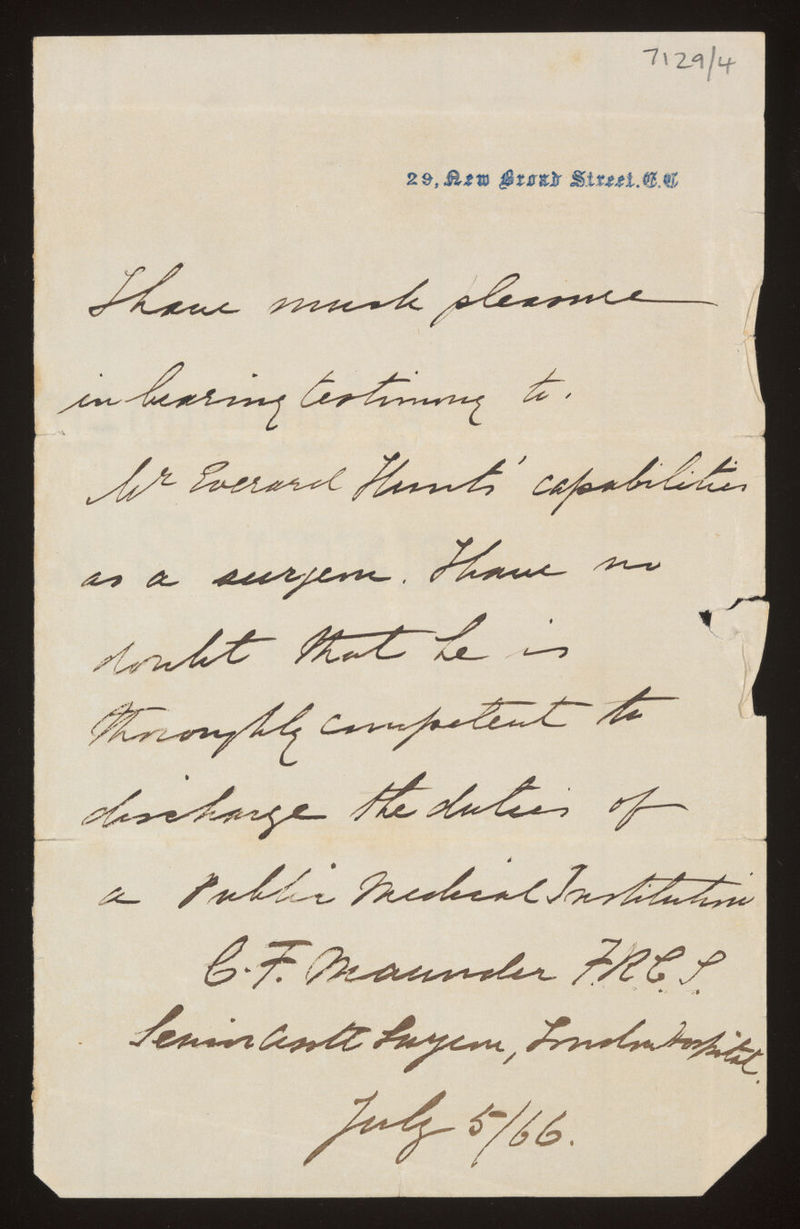 7129/4
29, New Broad Street. E.C
I have much pleasure
in bearing testimony to.
Mr Everard Hunts' capabilities
as a surgeon. I have no
doubt that he is
thoroughly competent to
discharge the duties of
a Public Medical Institution
C. F. Maunder F.R.C.S.
Senior Asstt Surgeon, London Hospital.
July 5/66.